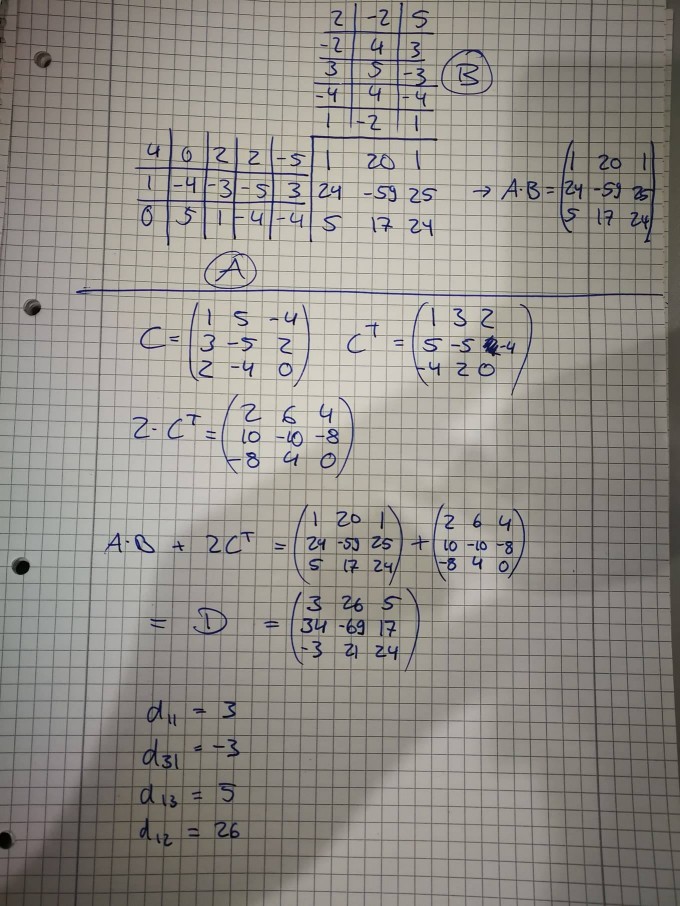 2 -2 5
-2 4 3
3 5 -3 B
-4 4 -4
1 -2 1
4 0 2 2 -5 1 20 1
1 -4 -3 -5 3 24 -59 25 → A·B = (1 20 1
24 -59 25
0 5 1 -4 -4 5 17 24 5 17 24)
A
C = (1 5 -4
3 -5 2
2 -4 0)
C^T = (1 3 2
5 -5 -4
-4 2 0)
2·C^T = (2 6 4
10 -10 -8
-8 4 0)
A·B + 2C^T = (1 20 1
24 -59 25
5 17 24) + (2 6 4
10 -10 -8
-8 4 0)
= D = (3 26 5
34 -69 17
-3 21 24)
d11 = 3
d31 = -3
d13 = 5
d12 = 26